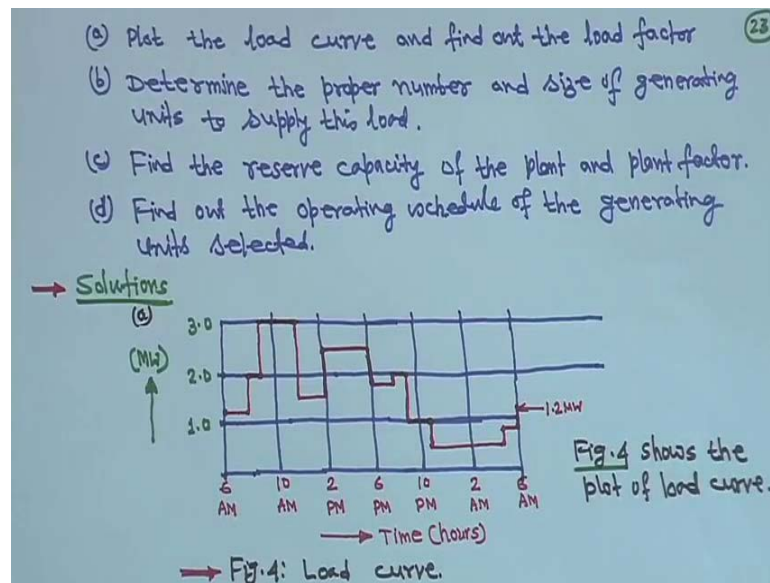 (a) Plot the load curve and find out the load factor
23
(b) Determine the proper number and size of generating
units to supply this load.
(c) Find the reserve capacity of the plant and plant factor.
(d) Find out the operating schedule of the generating
units selected.
→ Solutions
(a)
3.0
(MW)
2.0
1.0
1.2MW
6 10 2 6 10 2 6
AM AM PM PM PM AM AM
→ Time (hours)
Fig.4 shows the
plot of load curve.
→ Fig.4: Load curve.